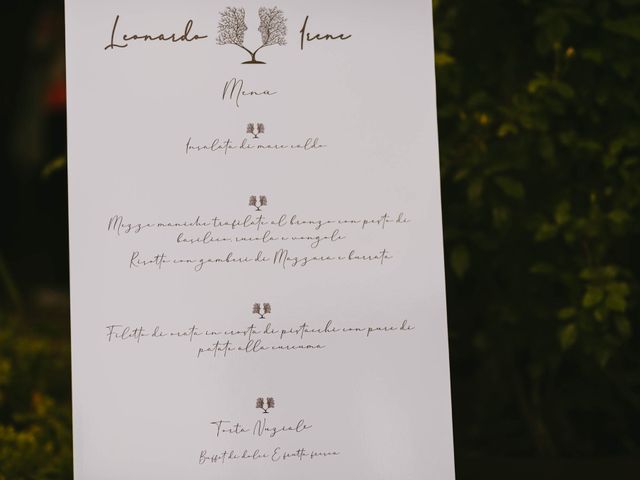 Leonardo Irene
Menù
Insalata di mare calda
Mezze maniche trafilate al bronzo con pesto di
basilico, rucola e vongole
Risotto con gamberi di Mazzara e burrata
Filetto di orata in crosta di pistacchi con pure di
patata alla curcuma
Torta Nuziale
Buffet di dolci E frutta fresca